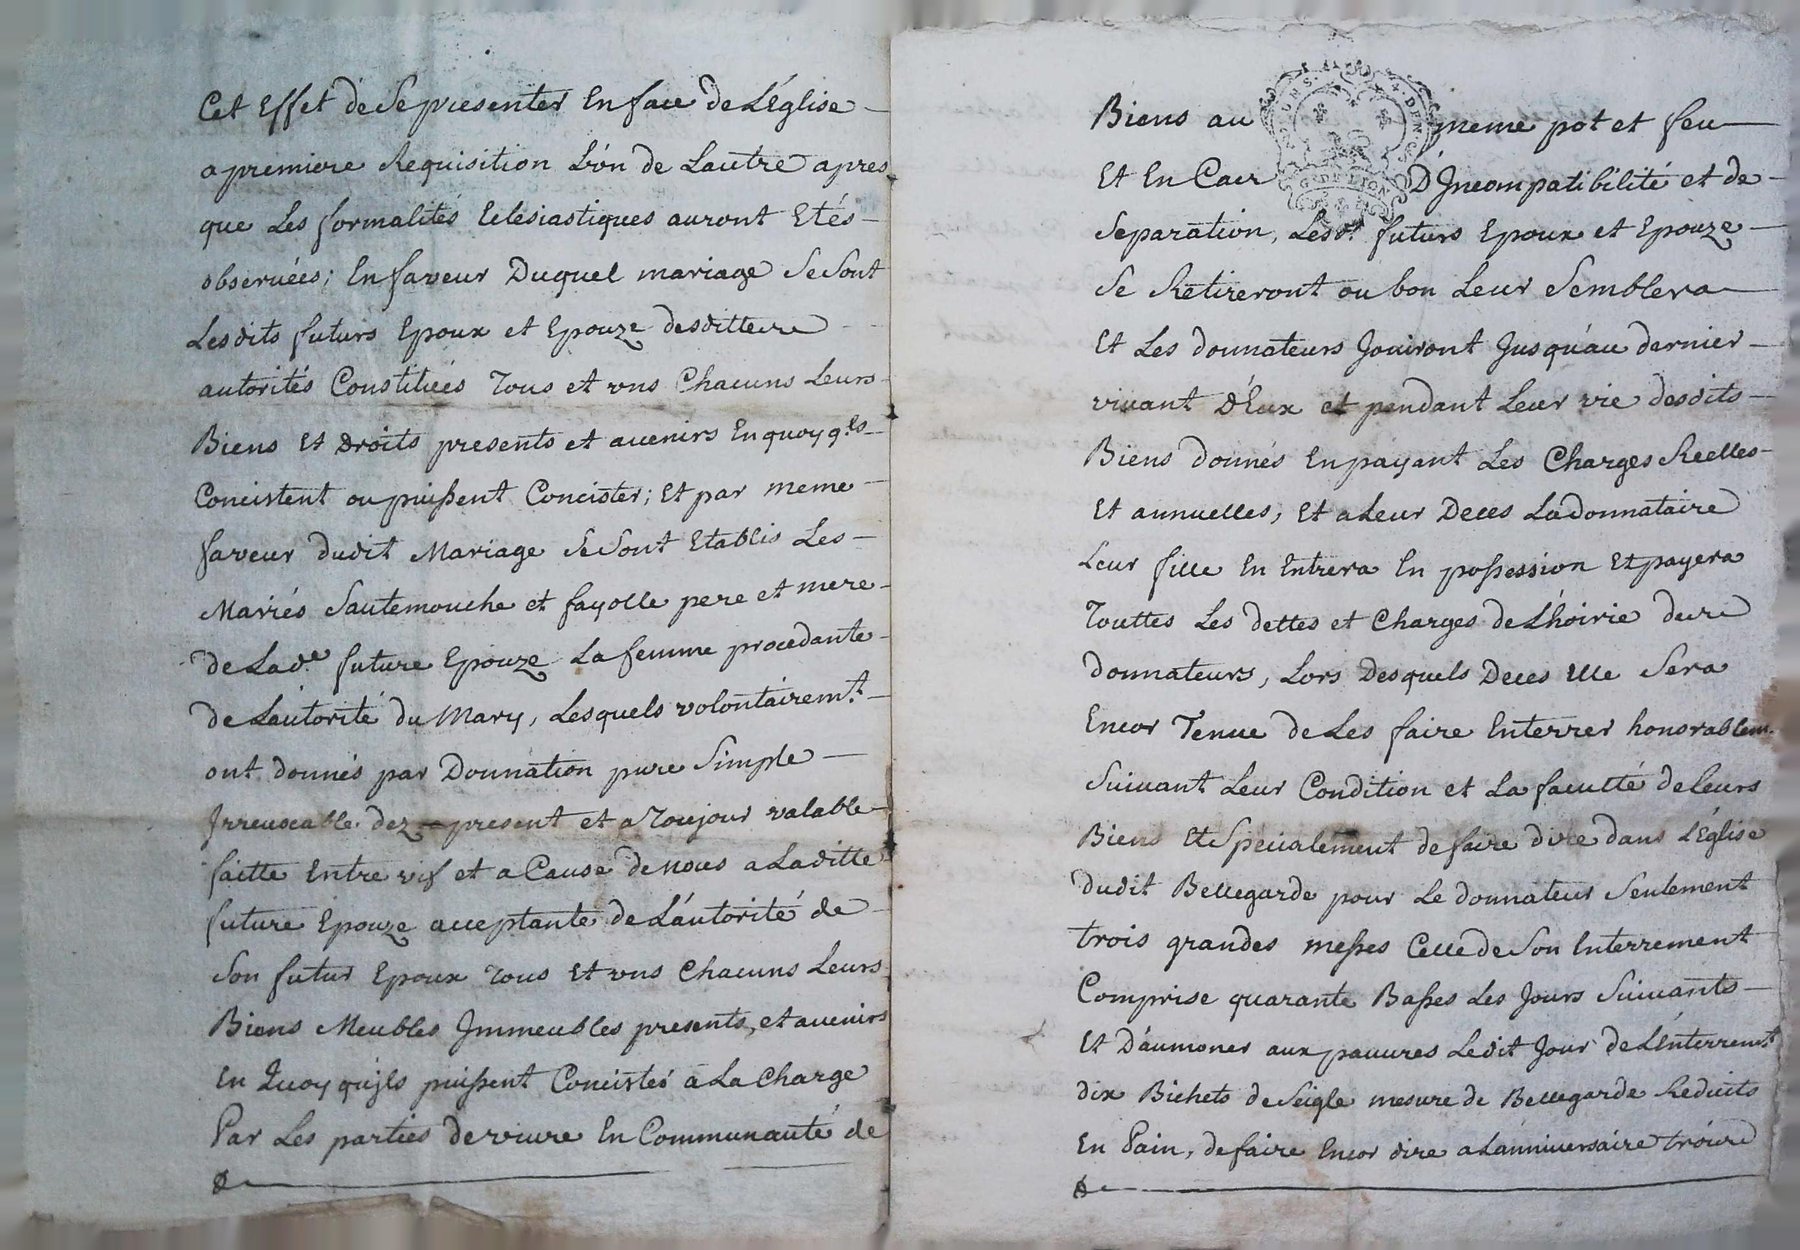 Cet Effet de Se presenter En face de L'Église
a premiere Requisition L'ún de Lautre apres
que Les formalités Eclesiastiques auront Etés
observées; En faveur Duquel mariage Se Sont
Lesdits futurs Epoux et Epouze desdittes
autorités Constitués Tous et vns Chacuns Leurs
Biens Et Droits presents et avenirs En quoy q.ls
Concistent ou puissent Concister; Et par meme
faveur dudit Mariage Se Sont Etablis Les
Mariés Sautemouche et fayolle pere et mere
de Lad.e future Epouze La femme procedante
de L'autorité du Mary, Lesquels volontairem.t
ont donnés par Donnation pure Simple
Irrevocable dez present et a Toujour valable
faitte Entre vif et a Cause de nous a Laditte
future Epouze acceptante de L'autorité de
Son futur Epoux Tous Et vns Chacuns Leurs
Biens Meubles Immeubles presents, et avenirs
En Quoy qu'jls puissent Concister à La Charge
Par Les parties de vivre En Communauté de
Biens au meme pot et feu
Et En Cas D'Incompatibilité et de
Separation, Lesd.ts futurs Epoux et Epouze
Se Retireront ou bon Leur Semblera
Et Les donnateurs Jouiront Jusqu'au dernier
vivant D'Eux et pendant Leur vie desdits
Biens donnés En payant Les Charges Reelles
Et annuelles, Et a Leur Deces La donnataire
Leur fille En Entrera En possession Et payera
Touttes Les dettes et Charges de L'hoirie des
donnateurs, Lors Desquels Deces Elle Sera
Encor Tenue de Les faire Enterrer honorablem.
Suivant Leur Condition et La faculté de Leurs
Biens Et Specialement de faire dire dans L'Église
dudit Bellegarde pour Le donnateur Seulement
trois grandes messes Celle de Son Enterrement
Comprise quarante Basses Les Jours Suivants
Et D'aumoner aux pauvres Ledit Jour de L'Enterrem.t
dix Bichets de Seigle mesure de Bellegarde Reduits
En Pain, de faire Encor dire a L'anniversaire